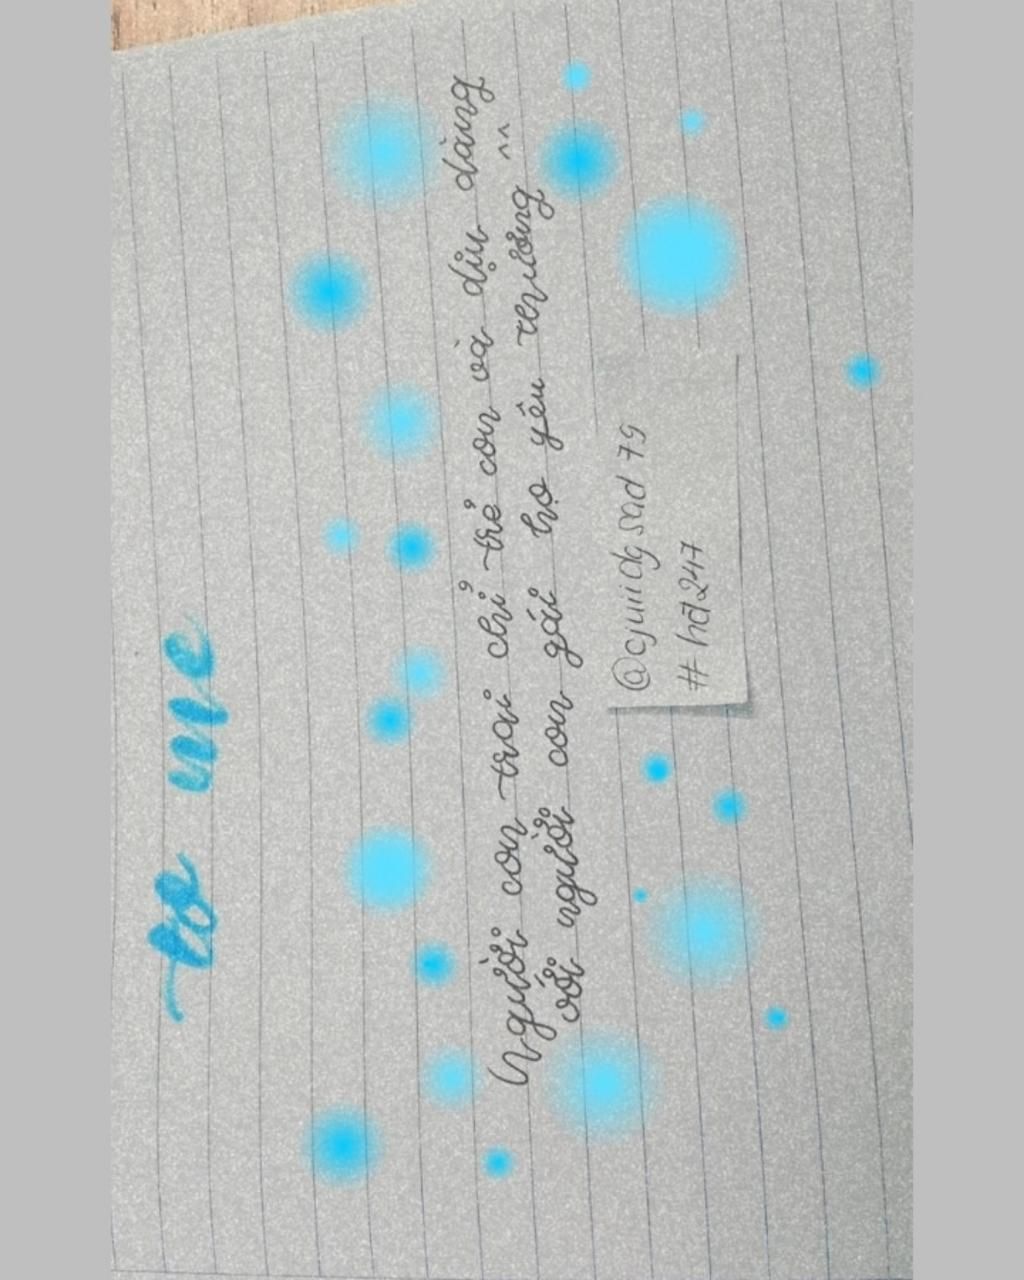 to me
Người con trai chỉ trẻ con và dịu dàng
với người con gái họ yêu thương ^^
#hđ247